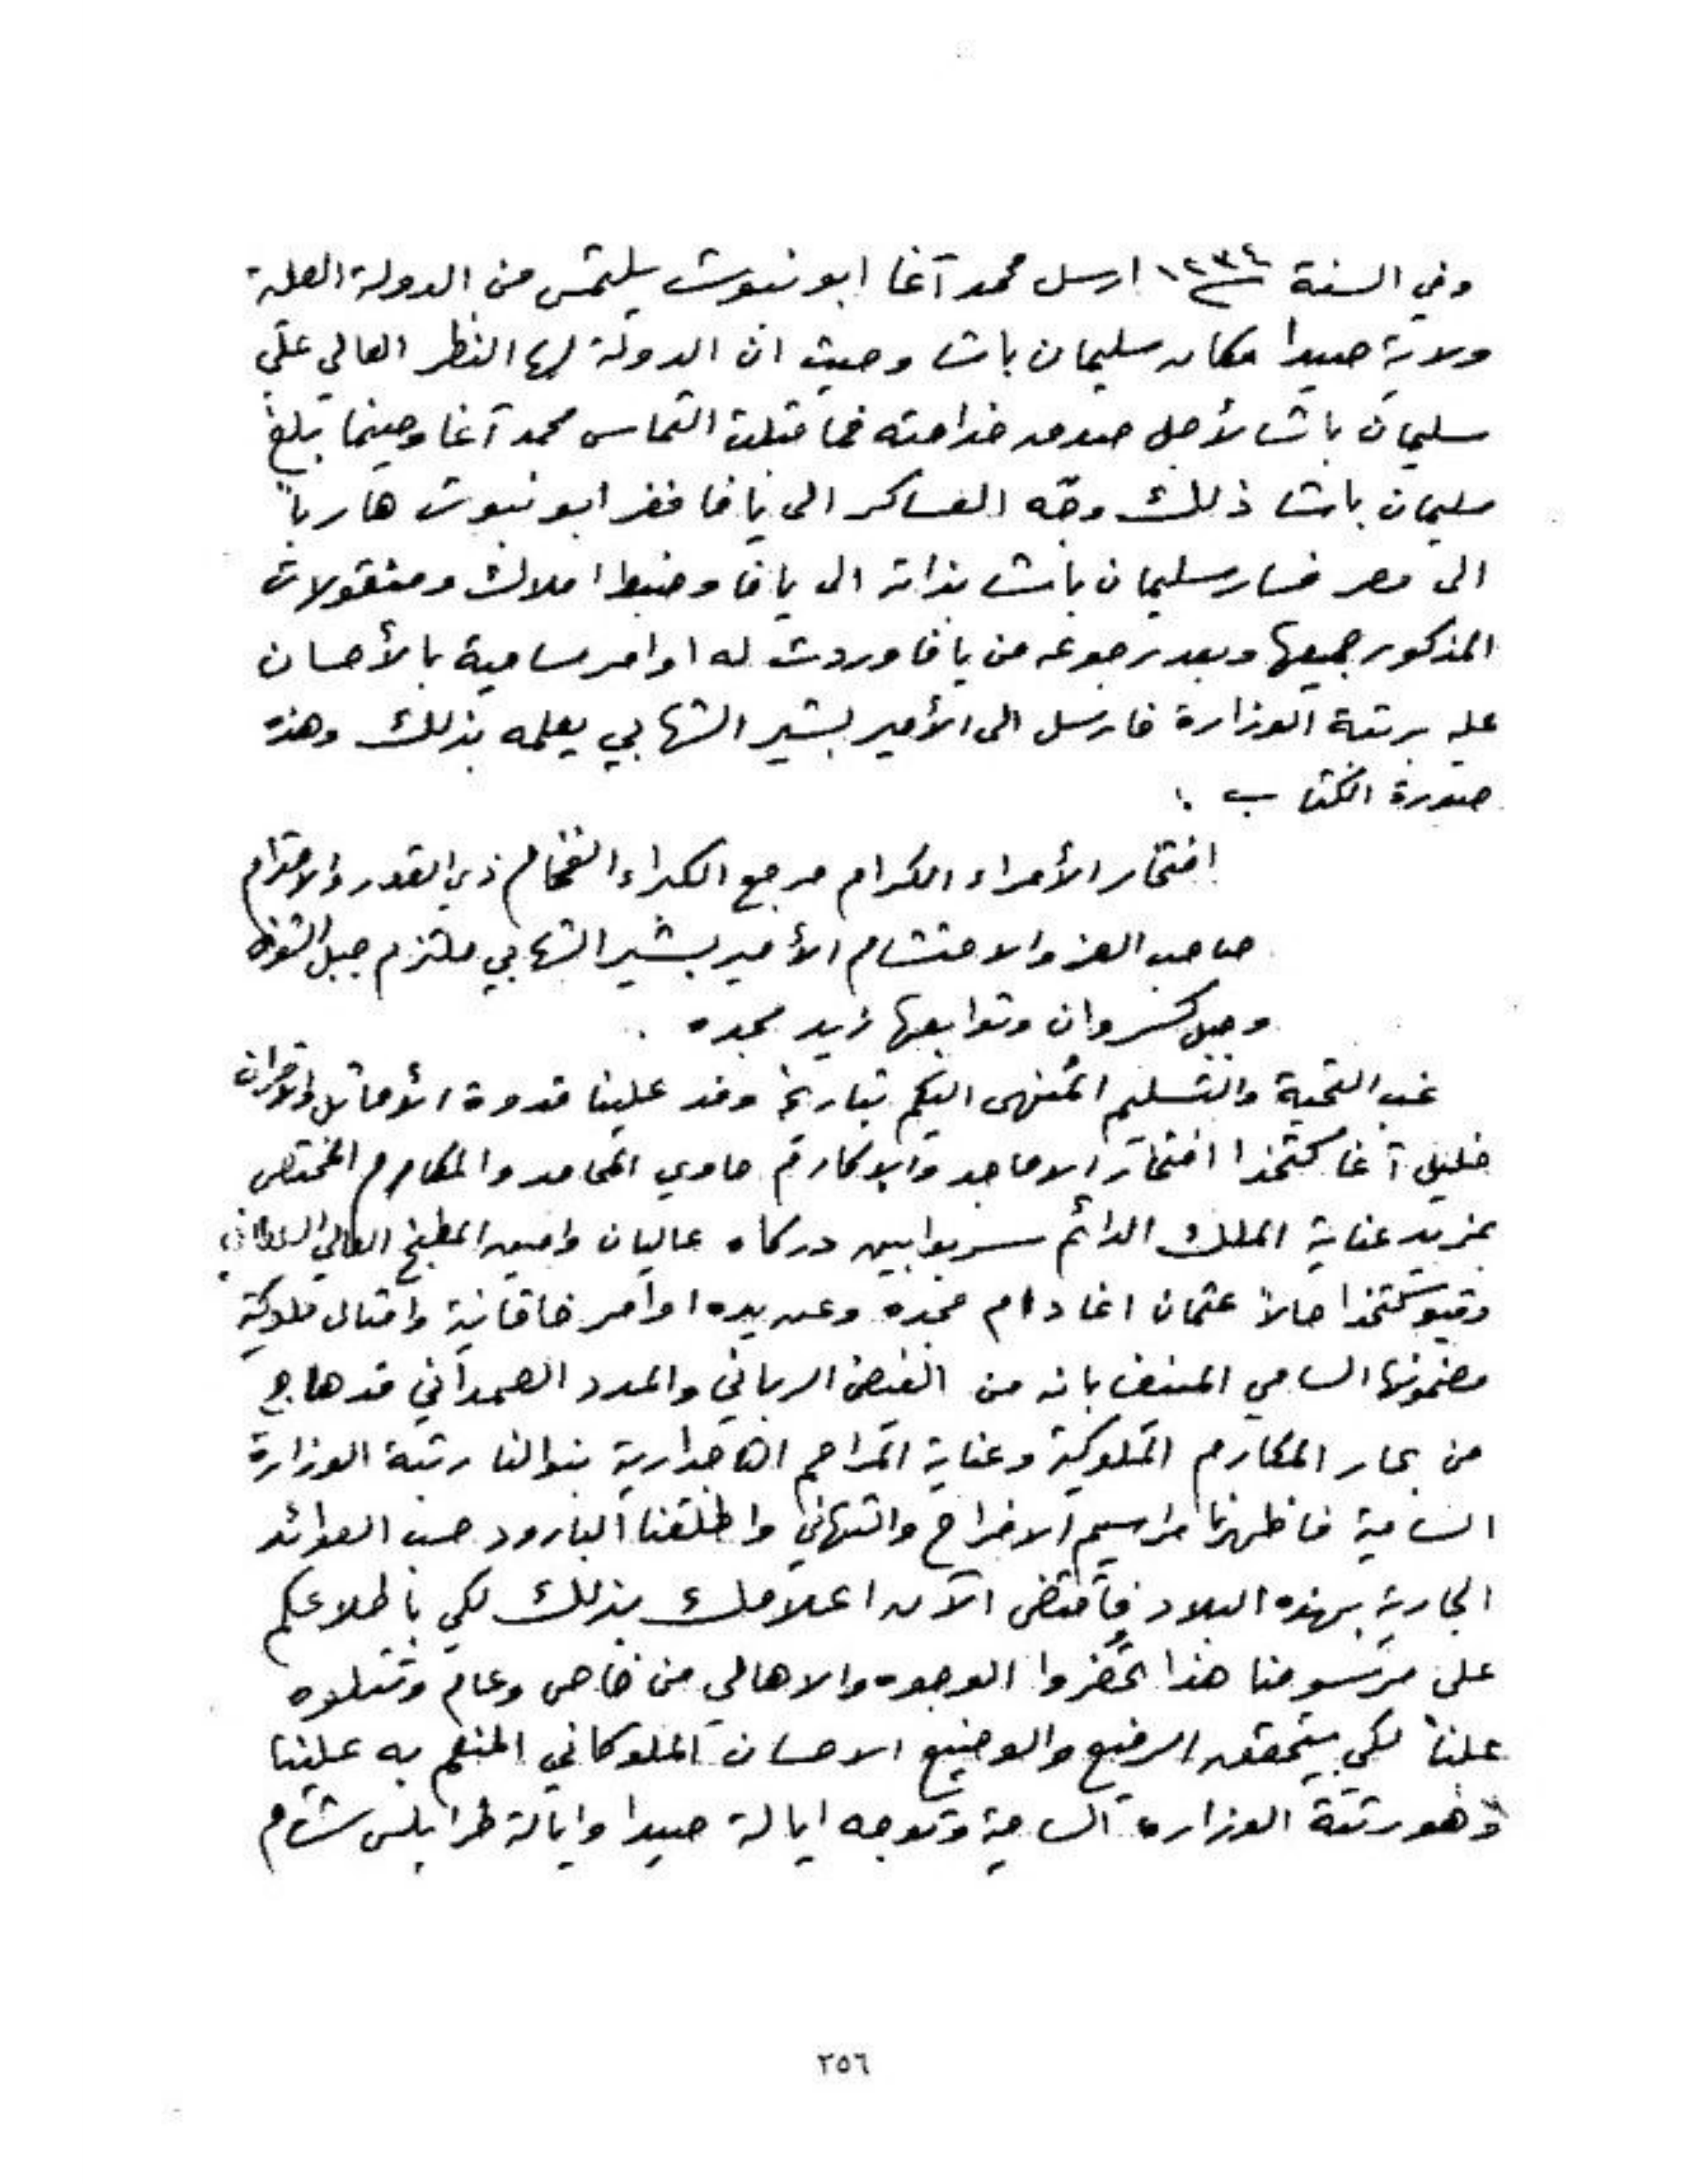 وفي السنة ١٢٣٤ ارسل محمد آغا ابو نبوت يلتمس من الدولة العلية
ولاية صيدا مكان سليمان باشا وحيث ان الدولة لها النظر العالي على
سليمان باشا لأجل صدق خدامته فما قبلت التماس محمد آغا وحينما بلغ
سليمان باشا ذلك وجّه العساكر الى يافا ففر ابو نبوت هارباً
الى مصر فسار سليمان باشا بذاته الى يافا وضبط املاك ومنقولات
المذكور جميعها وبعد رجوعه من يافا وردت له اوامر سامية بالأحسان
عليه برتبة الوزارة فارسل الى الأمير بشير الشهابي يعلمه بذلك وهذه
صورة الكتاب :
افتخار الأمراء الكرام مرجع الكبراء الفخام ذي القدر والاحترام
صاحب العز والاحتشام الأمير بشير الشهابي ملتزم جبل الشوف
وجبل كسروان وتوابعها زيد مجده .
غب التحية والتسليم المُنهى اليكم بتاريخه وفد علينا قدوة الأماثل والاقران
خليل آغا كتخدا افتخار الاماجد والاكارم حاوي المحامد والمكارم المختص
بمزيد عناية الملك الدائم سربوابين دركاه عاليان وامين المطبخ العالي السلطاني
وقبوكتخدا حالاً عثمان اغا دام مجده وعن يده اوامر خاقانية وامثال ملوكية
مضمونها السامي المنيف بانه من الفيض الرباني والمدد الصمداني قد هاج
من بحار المكارم الملوكية وعناية المراحم التاجدارية بنوالنا رتبة الوزارة
السامية فاظهرنا مراسيم الافراح والتهاني واطلقنا البارود حسب العوائد
الجارية بهذه البلاد فأقتضى الآن اعلامك بذلك لكي باطلاعكم
على مرسومنا هذا تحضروا الوجوه والاهالي من خاص وعام وتتلوه
علناً لكي يتحقق الرفيع والوضيع الاحسان الملوكاني المنعم به علينا
وهو رتبة الوزاره السامية وتوجه ايالة صيدا وايالة طرابلس شام
٢٥٦